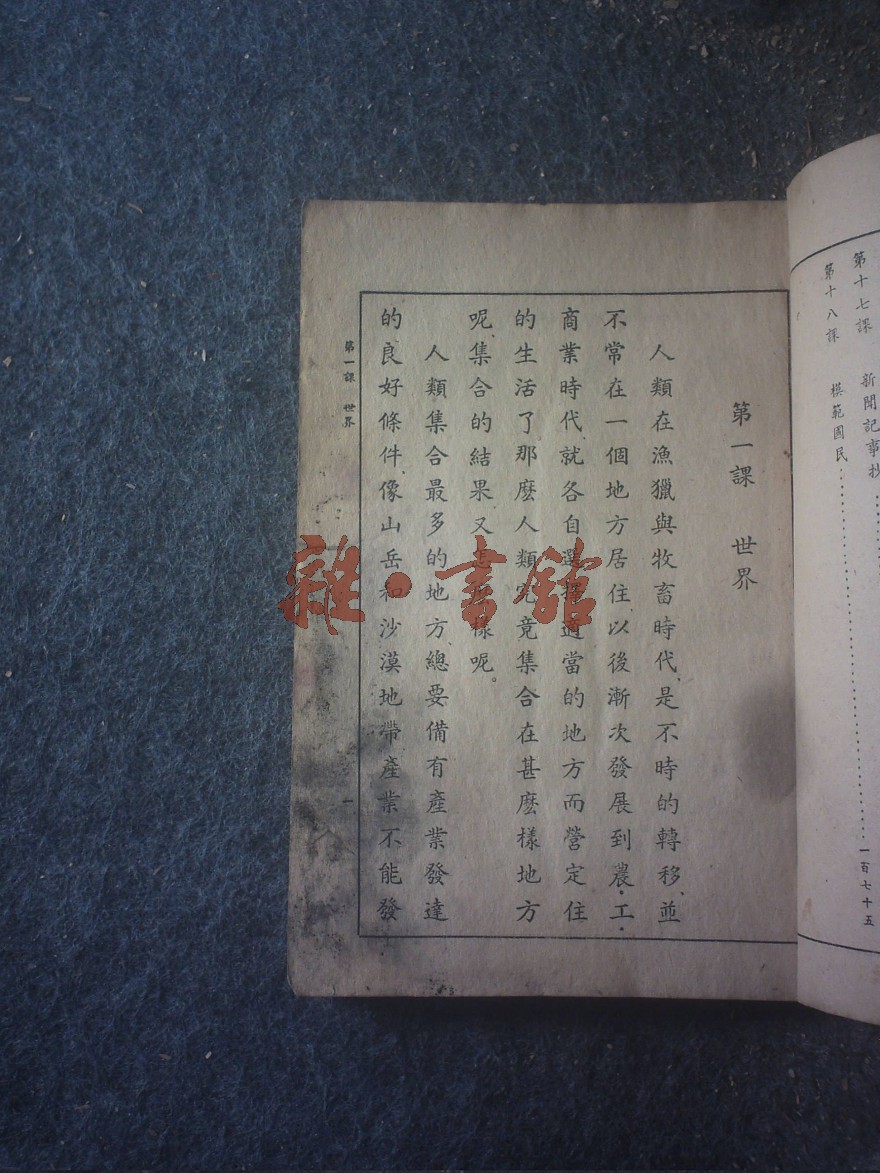 第十七課　新聞記事抄
第十八課　模範國民…………一百七十五
第一課　世界
人類在漁獵與牧畜時代、是不時的轉移、並
不常在一個地方居住以後漸次發展到農・工・
商業時代、就各自選擇適當的地方而營定住
的生活了那麼人類究竟集合在甚麼樣地方
呢、集合的結果又怎麼樣呢。
人類集合最多的地方、總要備有產業發達
的良好條件、像山岳和沙漠地帶產業不能發
第一課　世界
一
雜・書館